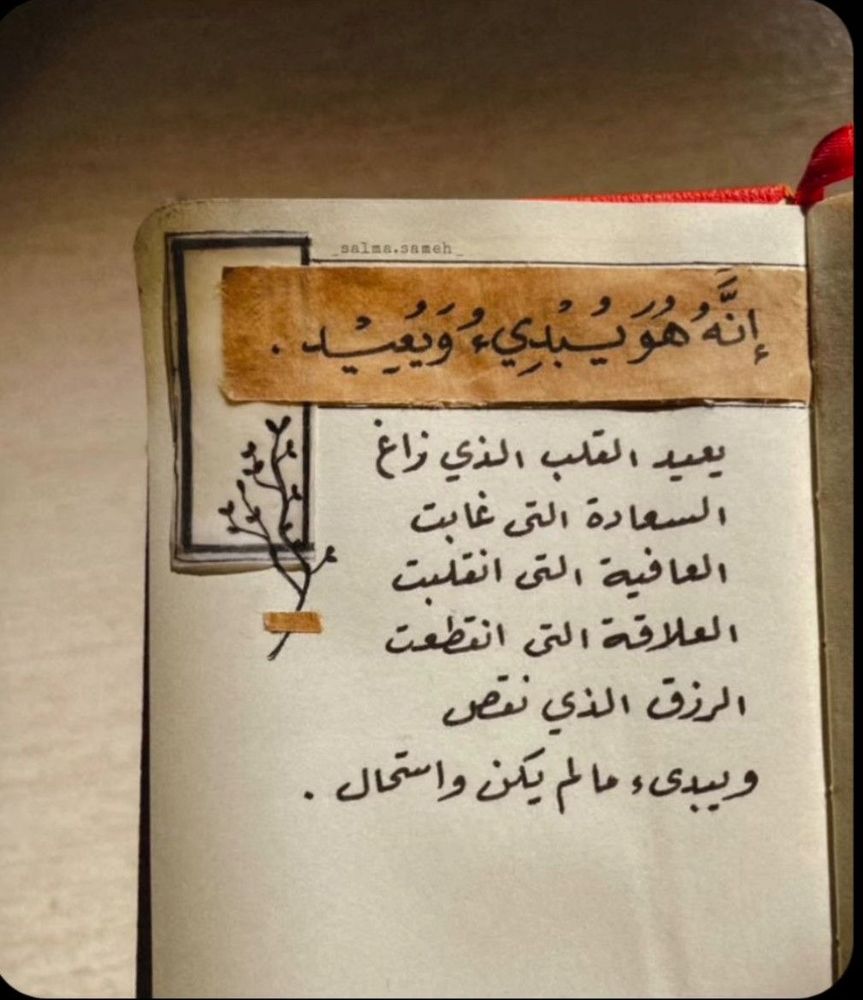 _salma.sameh_
إِنَّهُ هُوَ يُبْدِيءُ وَيُعِيْد .
يعيد القلب الذي زاغ
السعادة التى غابت
العافية التى انقلبت
العلاقة التى انقطعت
الرزق الذي نقص
ويبدىء مالم يكن واستحال .